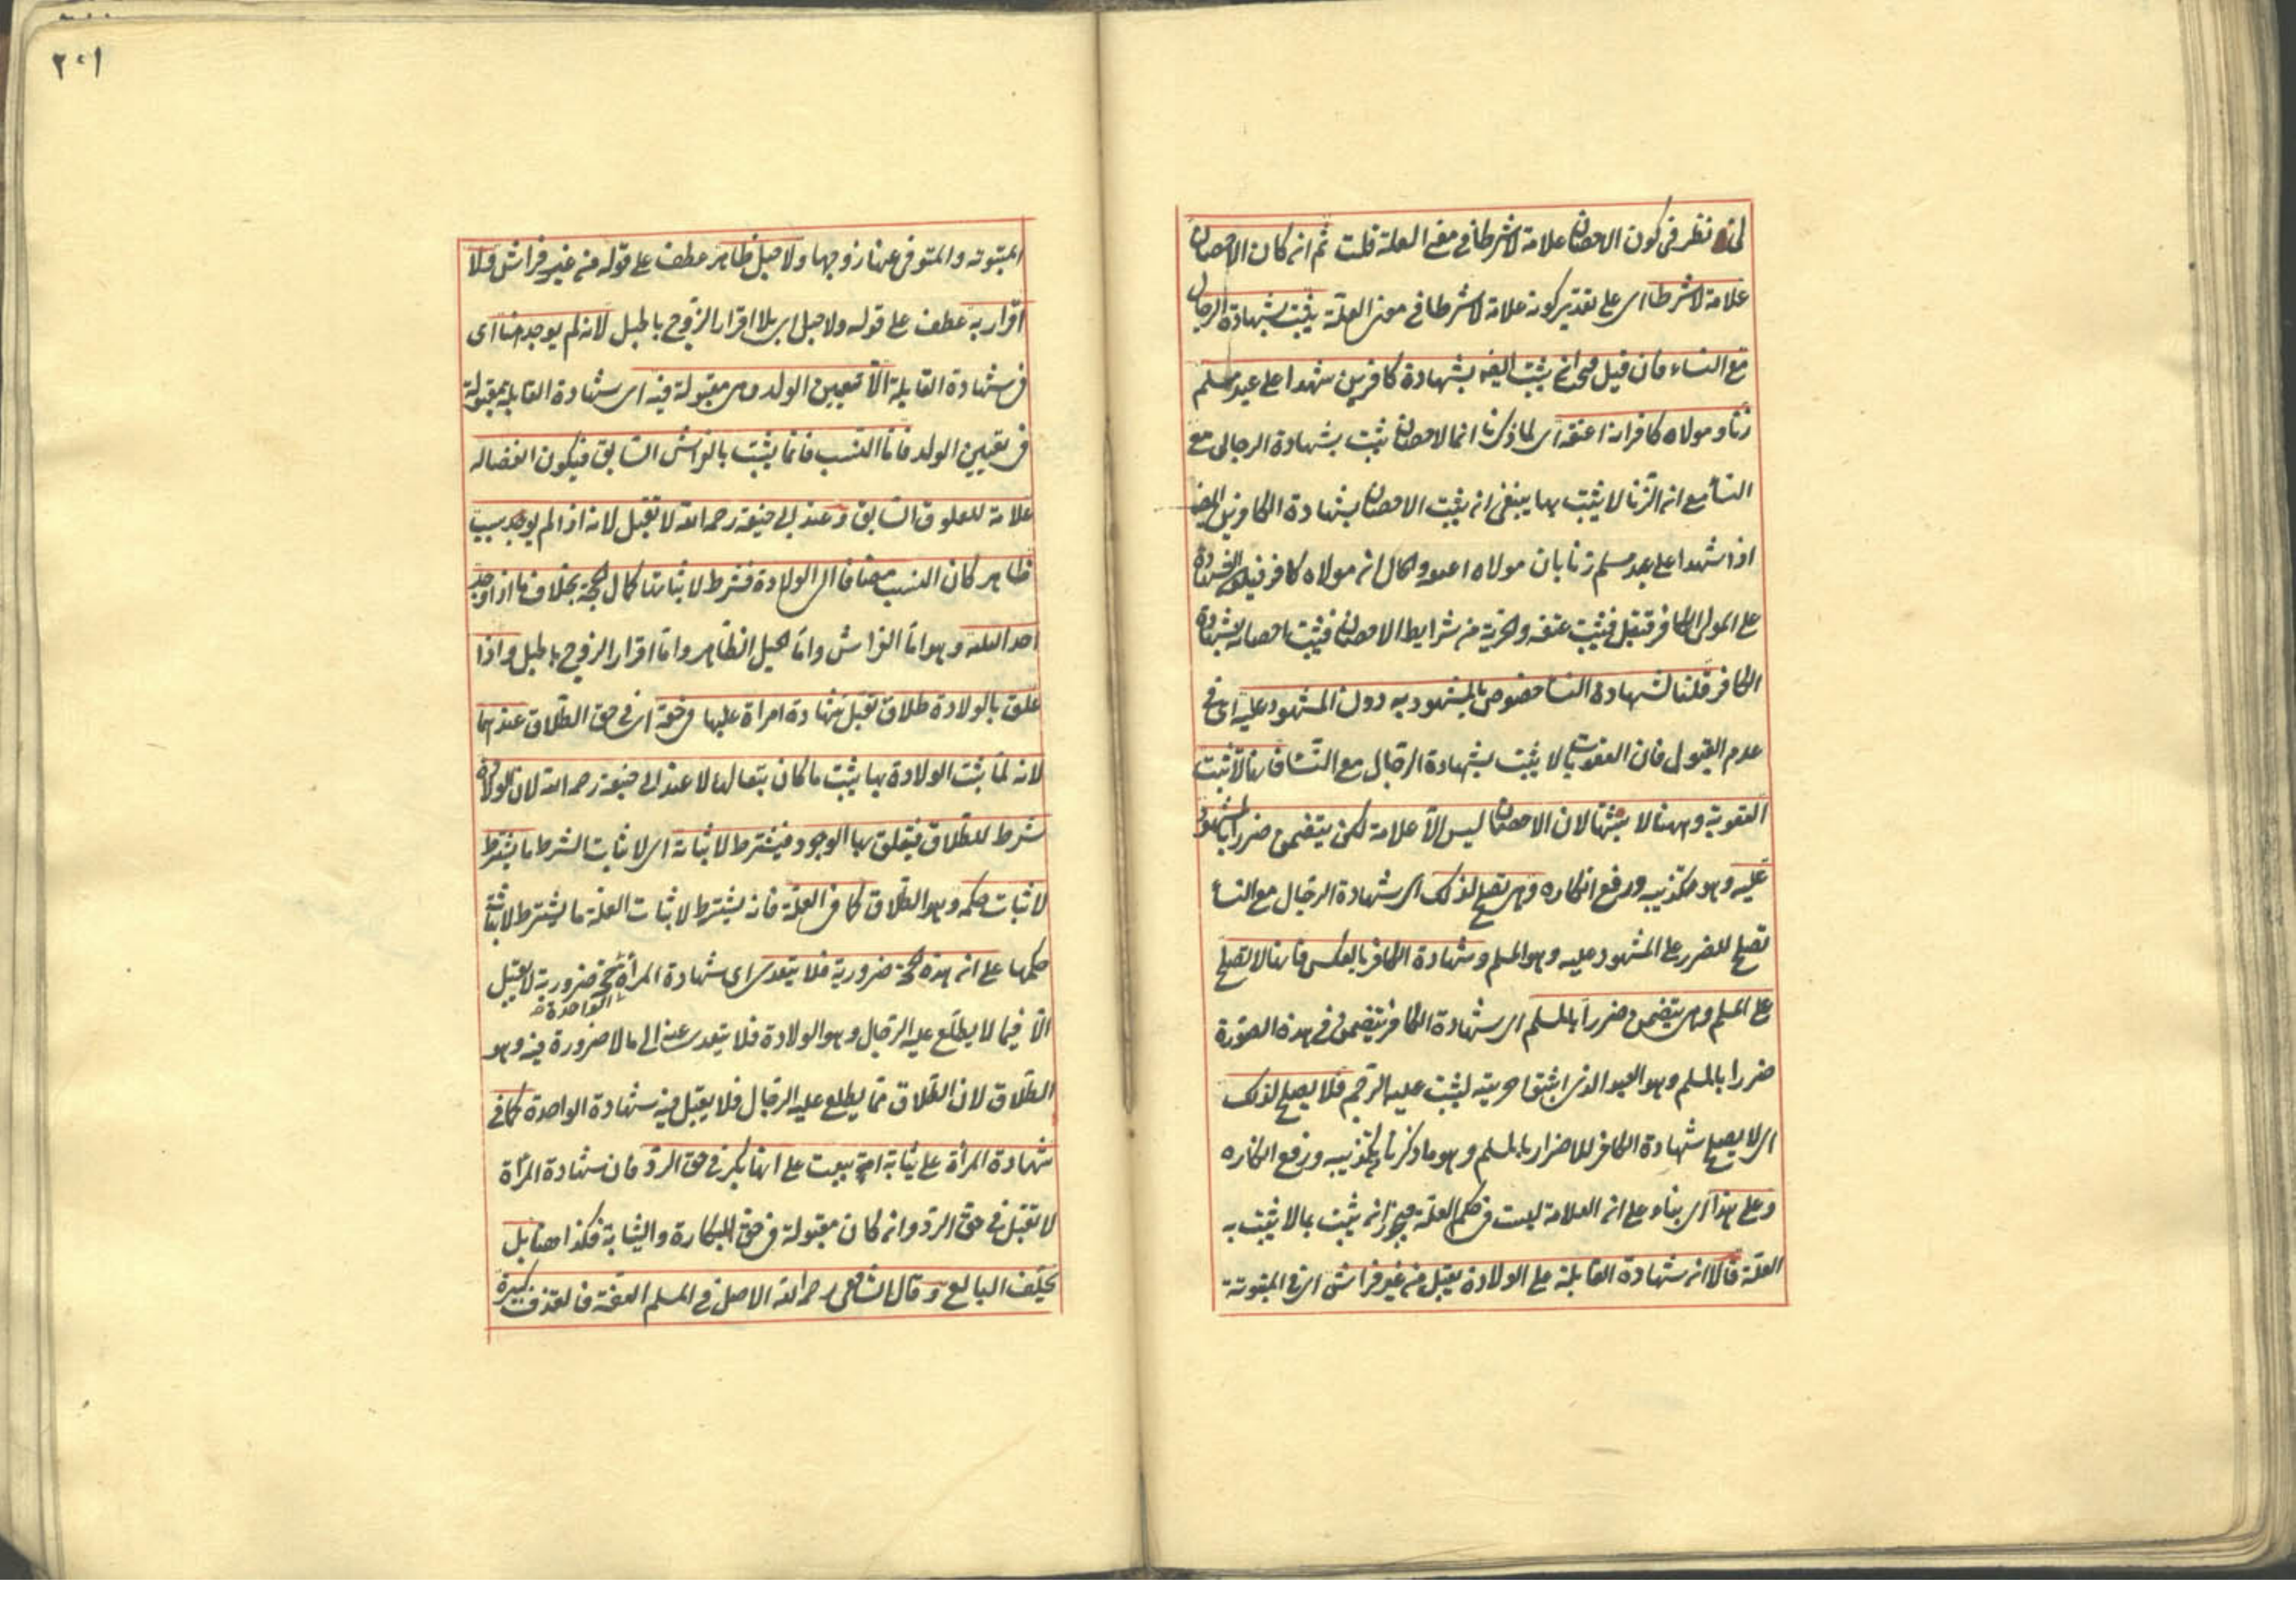 نظر فى كون الاحصان علامة لا شرطا فى معنى العلة قلت ثم ان كان الاحصان
علامة لا شرطا اى على تقدير كونه علامة لا شرطا فى معنى العلة يثبت بشهادة الرجال
مع النساء فان قيل فيجب ان يثبت ايضا بشهادة كافرين شهدا على عبد مسلم
زنا ومولاه كافر انه اعتقه اى لما ذكرنا ان الاحصان يثبت بشهادة الرجال مع
النسأ مع ان الزنا لا يثبت بها ينبغى ان يثبت الاحصان بشهادة الكافرين ايضا
اذا شهدا على عبد مسلم زنا بان مولاه اعتقه والحال ان مولاه كافر فيكون الشهادة
على المولى الكافر فتقبل فيثبت عتقه والحرية من شرايط الاحصان فيثبت احصانه بشهادة
الكافر قلنا لشهادة النسأ خصوص بالمشهود به دون المشهود عليه اى فى
عدم القبول فان العقوبات لا يثبت بشهادة الرجال مع النسأ فانها لا تثبت
العقوبة وههنا لا يثبتها لان الاحصان ليس الا علامة لكن يتضمن ضررا بالمشهود
عليه وهو تكذيبه ورفع انكاره وهى تصلح لذلك اى شهادة الرجال مع النسأ
تصلح للضرر على المشهود عليه وهو المسلم وشهادة الكافر بالعكس فانها لا تصلح
على المسلم وهى يتضمن ضررا بالمسلم اى شهادة الكافر يتضمن فى هذه الصورة
ضررا بالمسلم وهو العبد الذى اثبتوا حريته ليثبت عليه الرجم فلا يصلح لذلك
اى لا يصلح شهادة الكافر للاضرار بالمسلم وهو ما ذكرنا من تكذيبه ورفع انكاره
وعلى هذا اى بناء على ان العلامة ليست فى حكم العلة فيجوز ان يثبت بما لا يثبت به
العلة قالا ان شهادة القابلة على الولادة يقبل من غير فراش اى فى المبتوتة
٢٠١
المبتوتة والمتوفى عنها زوجها ولا حبل ظاهر عطف على قوله من غير فراش ولا
اقرار به عطف على قوله ولا حبل اى بلا اقرار الزوج بالحبل لانه لم يوجد هنا اى
فى شهادة القابلة الا تعيين الولد وهى مقبولة فيه اى شهادة القابلة مقبولة
فى تعيين الولد فاما النسب فانما يثبت بالفراش السابق فيكون انفصاله
علامة للعلوق السابق وعند ابى حنيفة رحمه الله لا تقبل لانه اذا لم يوجد سبب
ظاهر كان النسب مضافا الى الولادة فشرط لاثباتها كمال الحجة بخلاف ما اذا وجد
احد الثلثة وهو اما الفراش واما الحبل الظاهر واما اقرار الزوج بالحبل واذا
علق بالولادة طلاق تقبل شهادة امراة عليها فى حقه اى فى حق الطلاق عندهما
لانه لما يثبت الولادة بها يثبت ما كان تبعا لها لا عند ابى حنيفة رحمه الله لان الولادة
شرط للطلاق فيتعلق بها الوجود فيشترط لاثباته اى لاثبات الشرط ما يشترط
لاثبات حكمه وهو الطلاق كما فى العلة فانه يشترط لاثبات العلة ما يشترط لاثبات
حكمها على ان هذه الحجة ضرورية فلا يتعدى اى شهادة المرأة الواحدة حجة ضرورية لا تقبل
الا فيما لا يطلع عليه الرجال وهو الولادة فلا يتعدى عنه الى ما لا ضرورة فيه وهو
الطلاق لان الطلاق مما يطلع عليه الرجال فلا يقبل فيه شهادة الواحدة كما فى
شهادة المرأة على ثيابة امة بيعت على انها بكر فى حق الرد فان شهادة المرأة
لا تقبل فى حق الرد وان كان مقبولة فى حق البكارة والثيابة فكذا هنا بل
يحلف البايع وقال الشافعى رحمه الله الاصل فى المسلم العفة فالقذف كبيرة